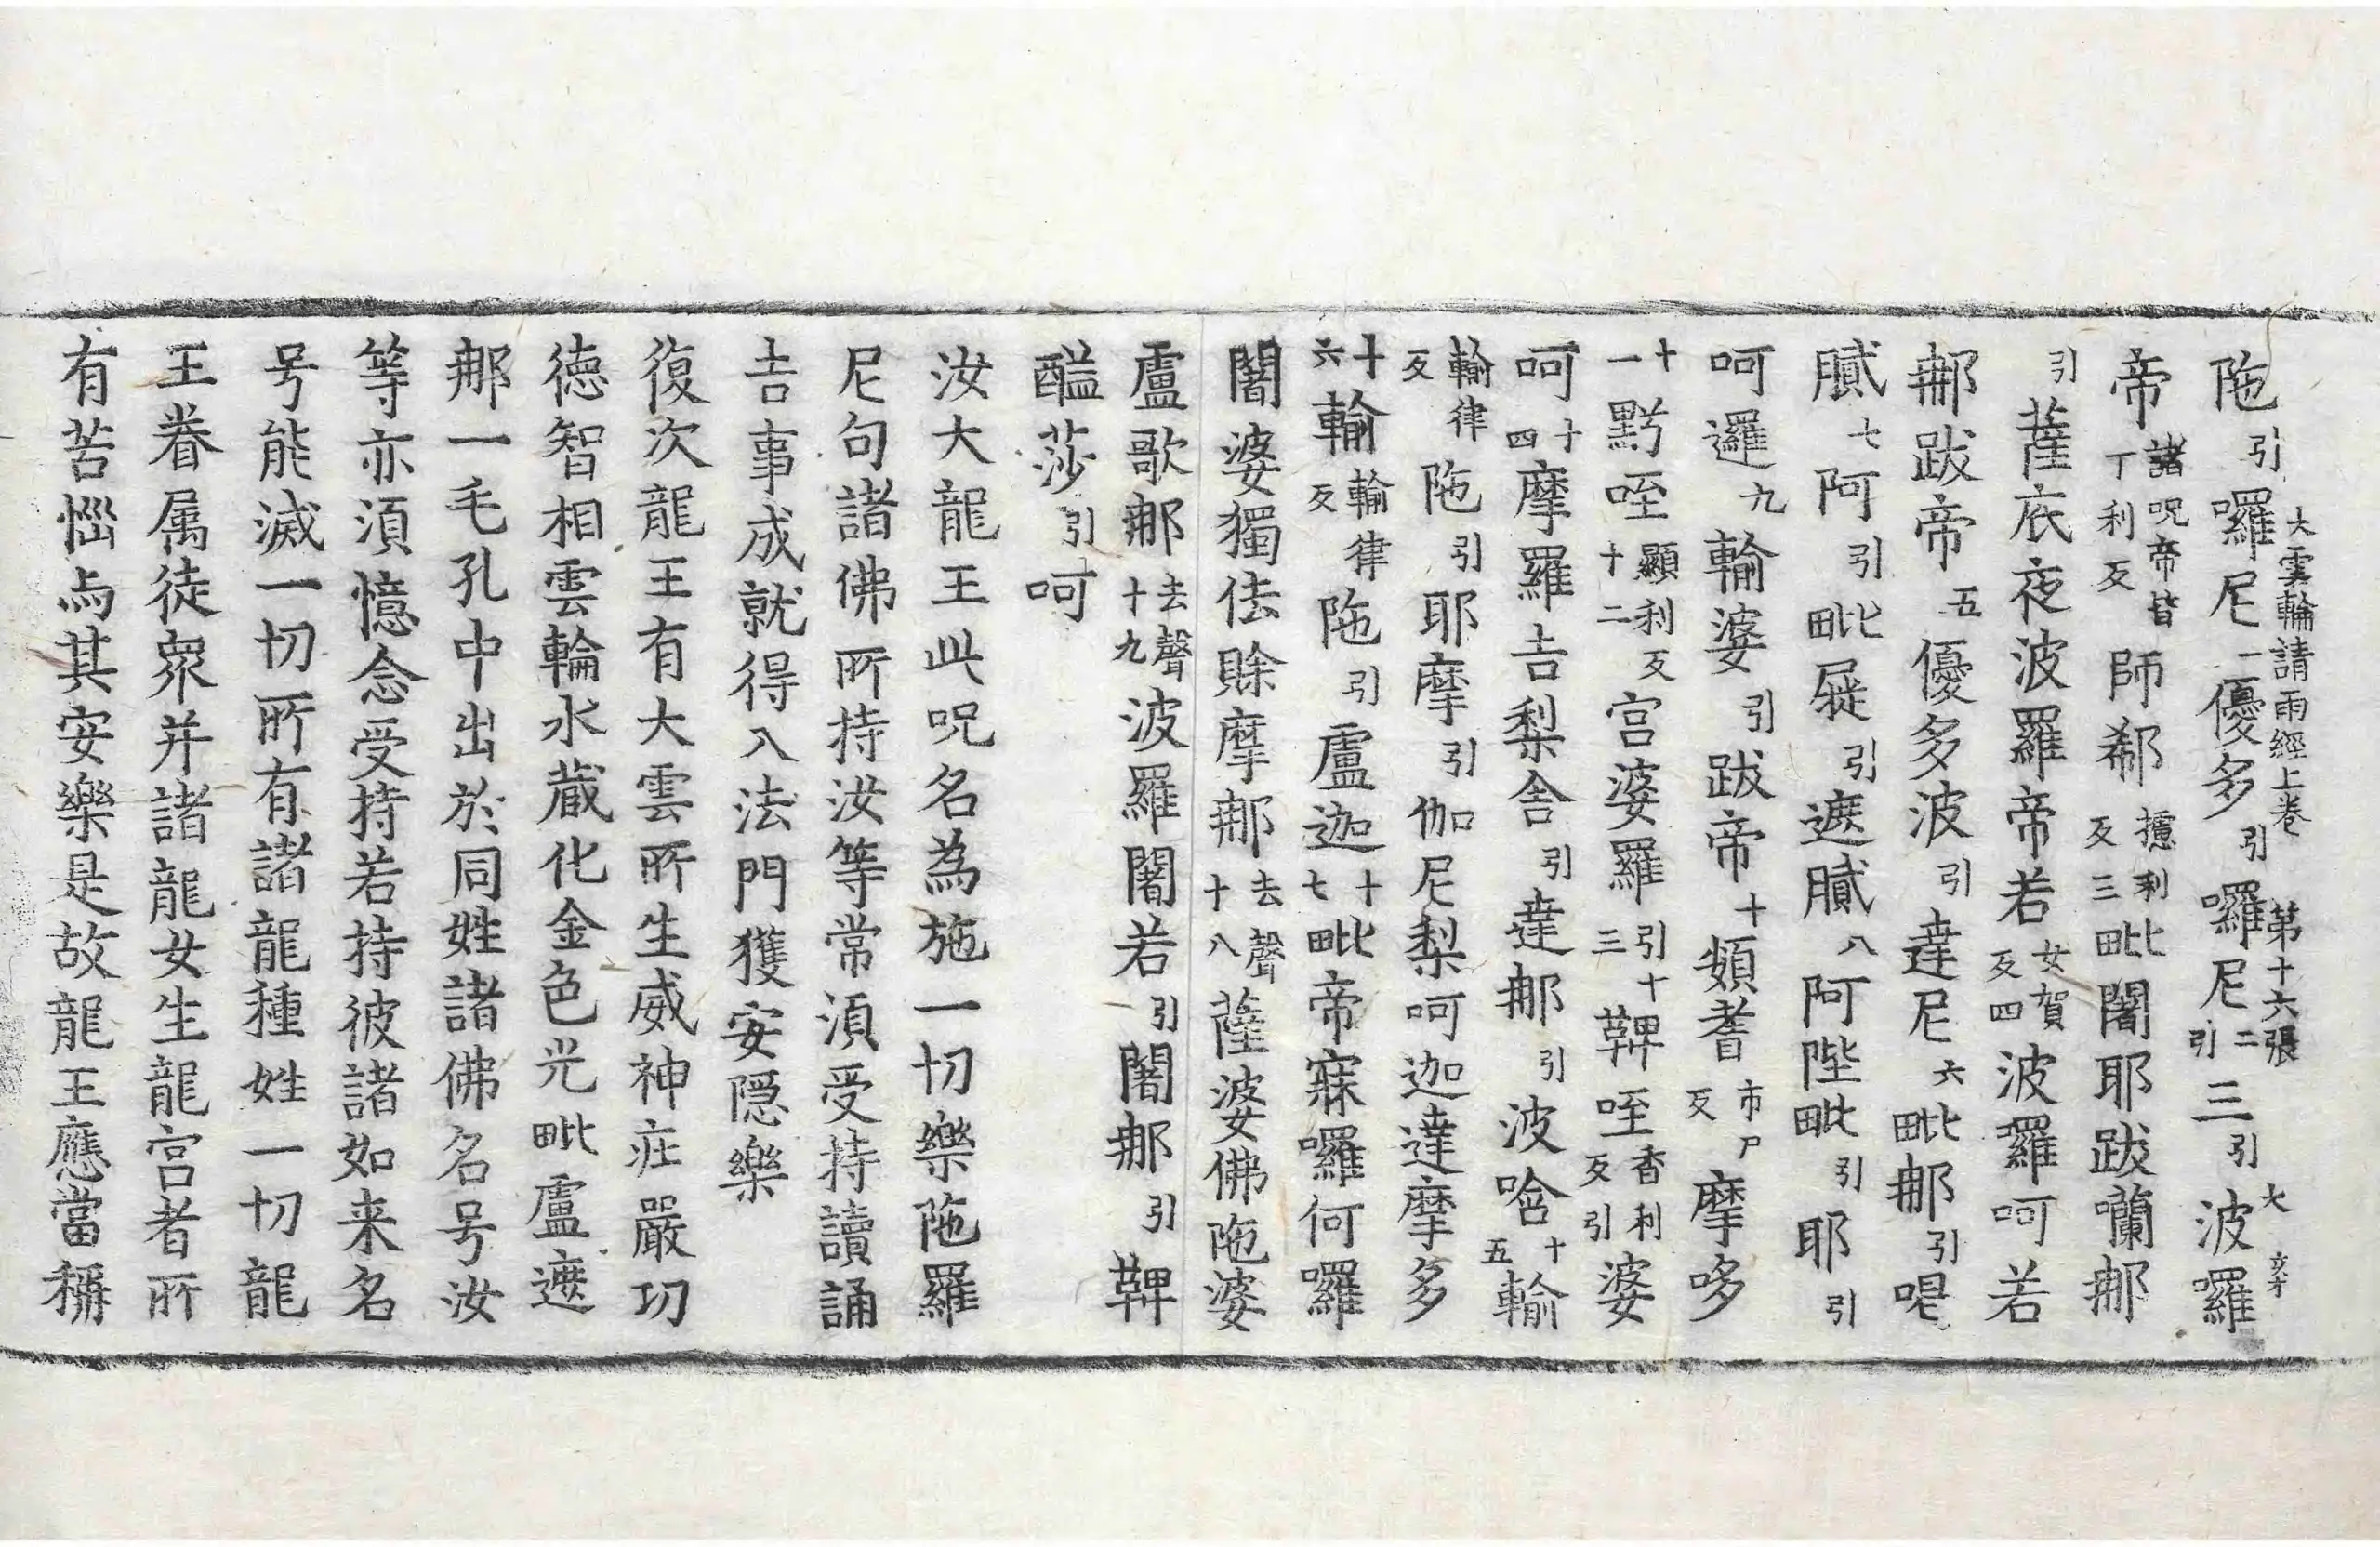 大雲輪請雨經上卷 第十六張 大
陁引囉尼一優多引囉尼二引三引波囉
帝諸呪帝皆丁利反師郗攄利反三毗闍耶跋囒那
引薩底夜波羅帝若女賀反四波羅呵若
那跋帝五優多波引達尼六毗那引喭
膩七阿引毗屣引遮膩八阿陛毗引耶引
呵邏九輸婆引跋帝十頞耆市尸反摩哆
十一黟咥顯利反十二宫婆羅引十三鞞咥香利反引婆
呵十四摩羅吉梨舍引達那引波唅十五輸
輸律反陁引耶摩引伽尼梨呵迦達摩多
十六輸輸律反陁引盧迦十七毗帝寐囉何囉
闍婆獨佉賒摩那去聲十八薩婆佛陁婆
盧歌那去聲十九波羅闍若引闍那引鞞
醯莎引呵
汝大龍王此呪名為施一切樂陁羅
尼句諸佛所持汝等常須受持讀誦
吉事成就得入法門獲安隱樂
復次龍王有大雲所生威神莊嚴功
德智相雲輪水蔵化金色光毗盧遮
那一毛孔中出於同姓諸佛名号汝
等亦須憶念受持若持彼諸如来名
号能滅一切所有諸龍種姓一切龍
王眷属徒衆并諸龍女生龍宫者所
有苦惱与其安樂是故龍王應當稱